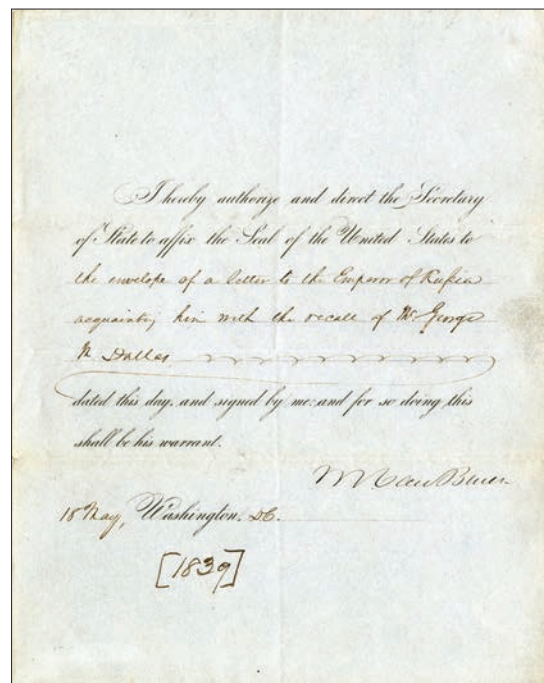 I hereby authorize and direct the Secretary
of State to affix the Seal of the United States to
the envelope of a letter to the Emperor of Russia
acquainting him with the recall of Mr George
M Dallas
dated this day, and signed by me: and for so doing this
shall be his warrant.
M Van Buren
18 May, Washington. DC.
[1839]